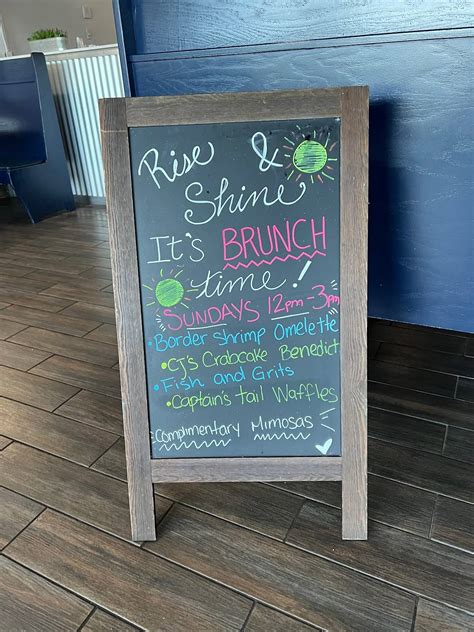 Rise &
Shine
It's BRUNCH
time!
SUNDAYS 12pm-3pm
•Border Shrimp Omelette
•CJ's Crabcake Benedict
•Fish and Grits
•Captain's tail Waffles
Complimentary Mimosas